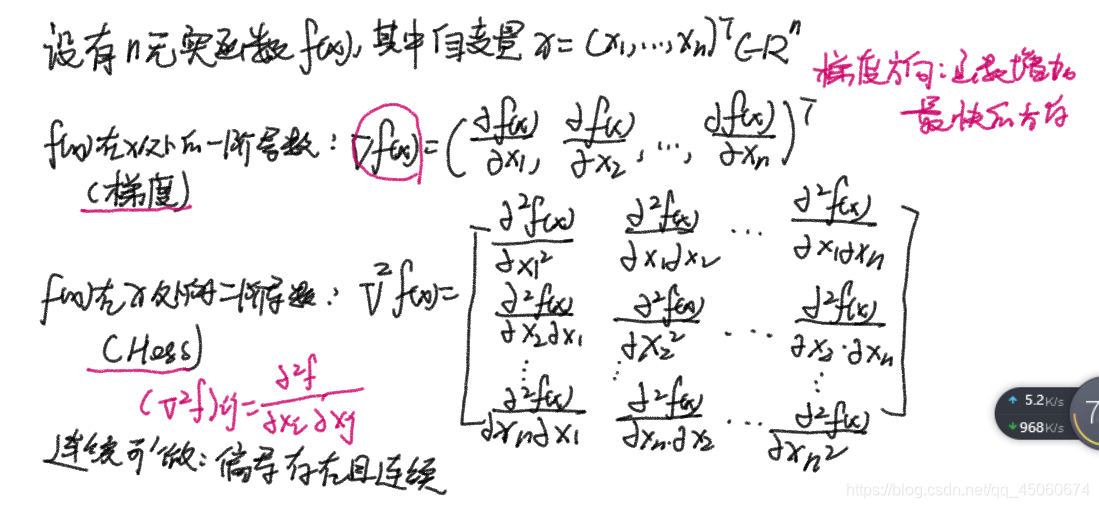 设有n元实函数f(x),其中自变量x=(x₁,...,xₙ)ᵀ∈Rⁿ
梯度方向:函数增加
最快的方向
f(x)在x处的一阶导数:∇f(x)=(∂f(x)/∂x₁, ∂f(x)/∂x₂, ..., ∂f(x)/∂xₙ)ᵀ
(梯度)
f(x)在x处的二阶导数:∇²f(x)=
[∂²f(x)/∂x₁² ∂²f(x)/∂x₁∂x₂ ... ∂²f(x)/∂x₁∂xₙ
∂²f(x)/∂x₂∂x₁ ∂²f(x)/∂x₂² ... ∂²f(x)/∂x₂·∂xₙ
⋮ ⋮ ⋮
∂²f(x)/∂xₙ∂x₁ ∂²f(x)/∂xₙ·∂x₂ ... ∂²f(x)/∂xₙ²]
(Hess)
(∇²f)ij=∂²f/∂xi∂xj
连续可微:偏导存在且连续
5.2K/s
968K/s
7
https://blog.csdn.net/qq_45060674